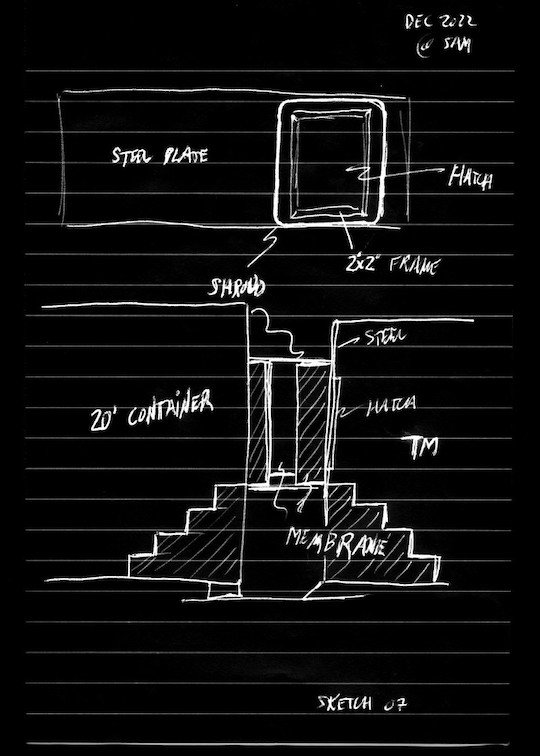 DEC 2022
@ SAM
STEEL PLATE
HATCH
2"x2" FRAME
SHROUD
STEEL
20' CONTAINER
HATCH
TM
MEMBRANE
SKETCH 07